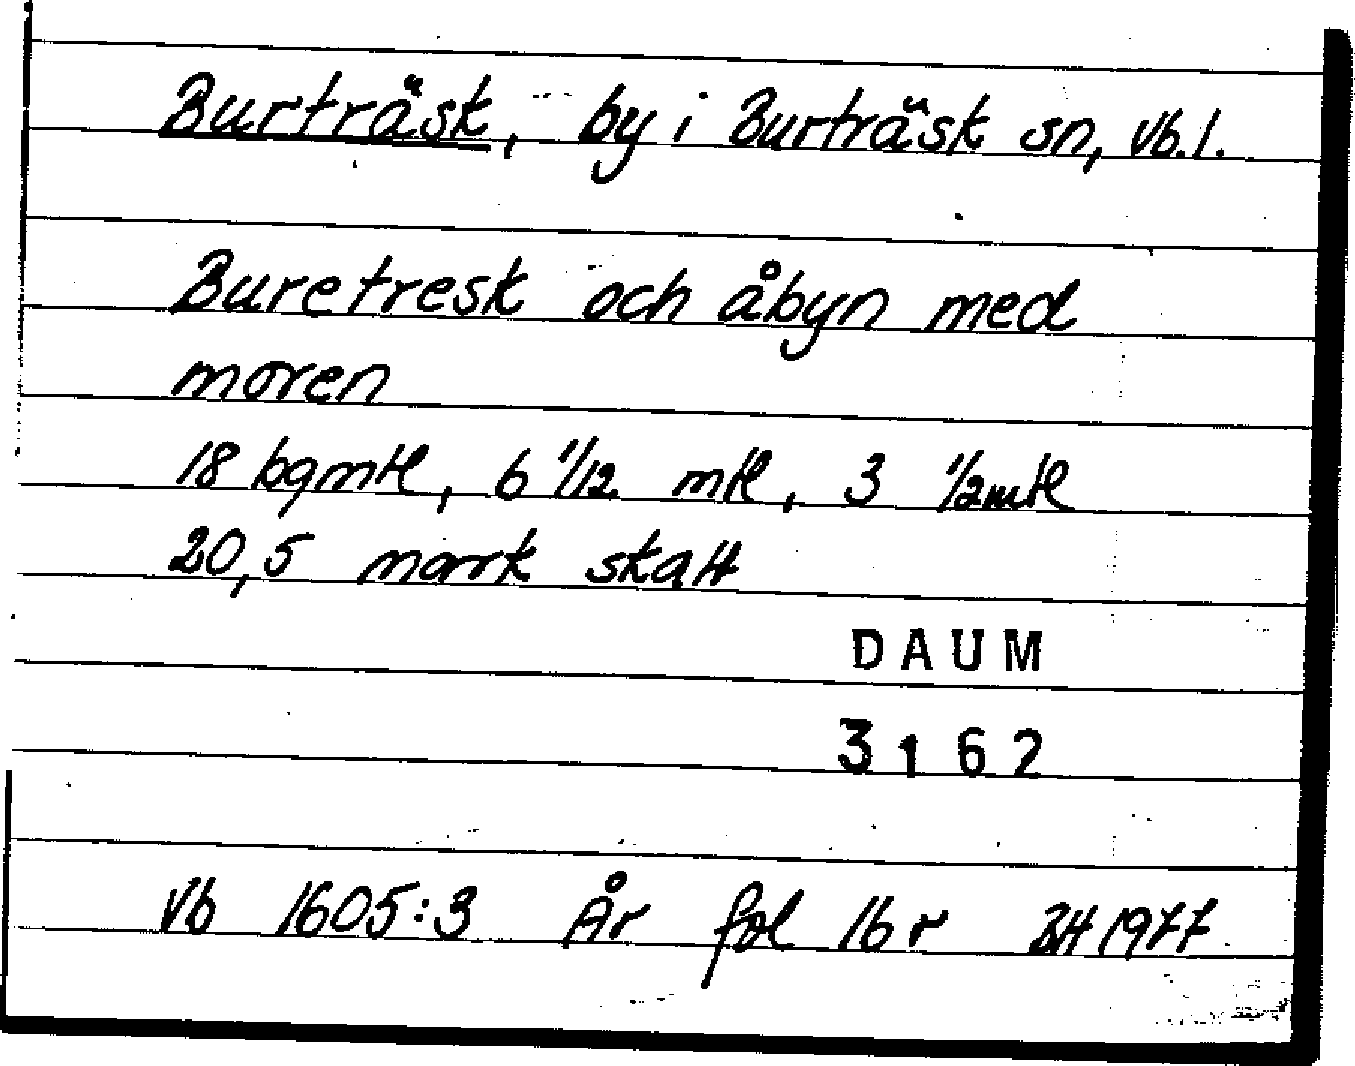 Burträsk, by i Burträsk sn, Vb. l.
Buretresk och åbyn med
moren
18 bgmtl, 6 1/12 mtl, 3 1/2 mtl
20,5 mark skatt
DAUM
3162
Vb 1605:3 År fol 16 r BH 1977